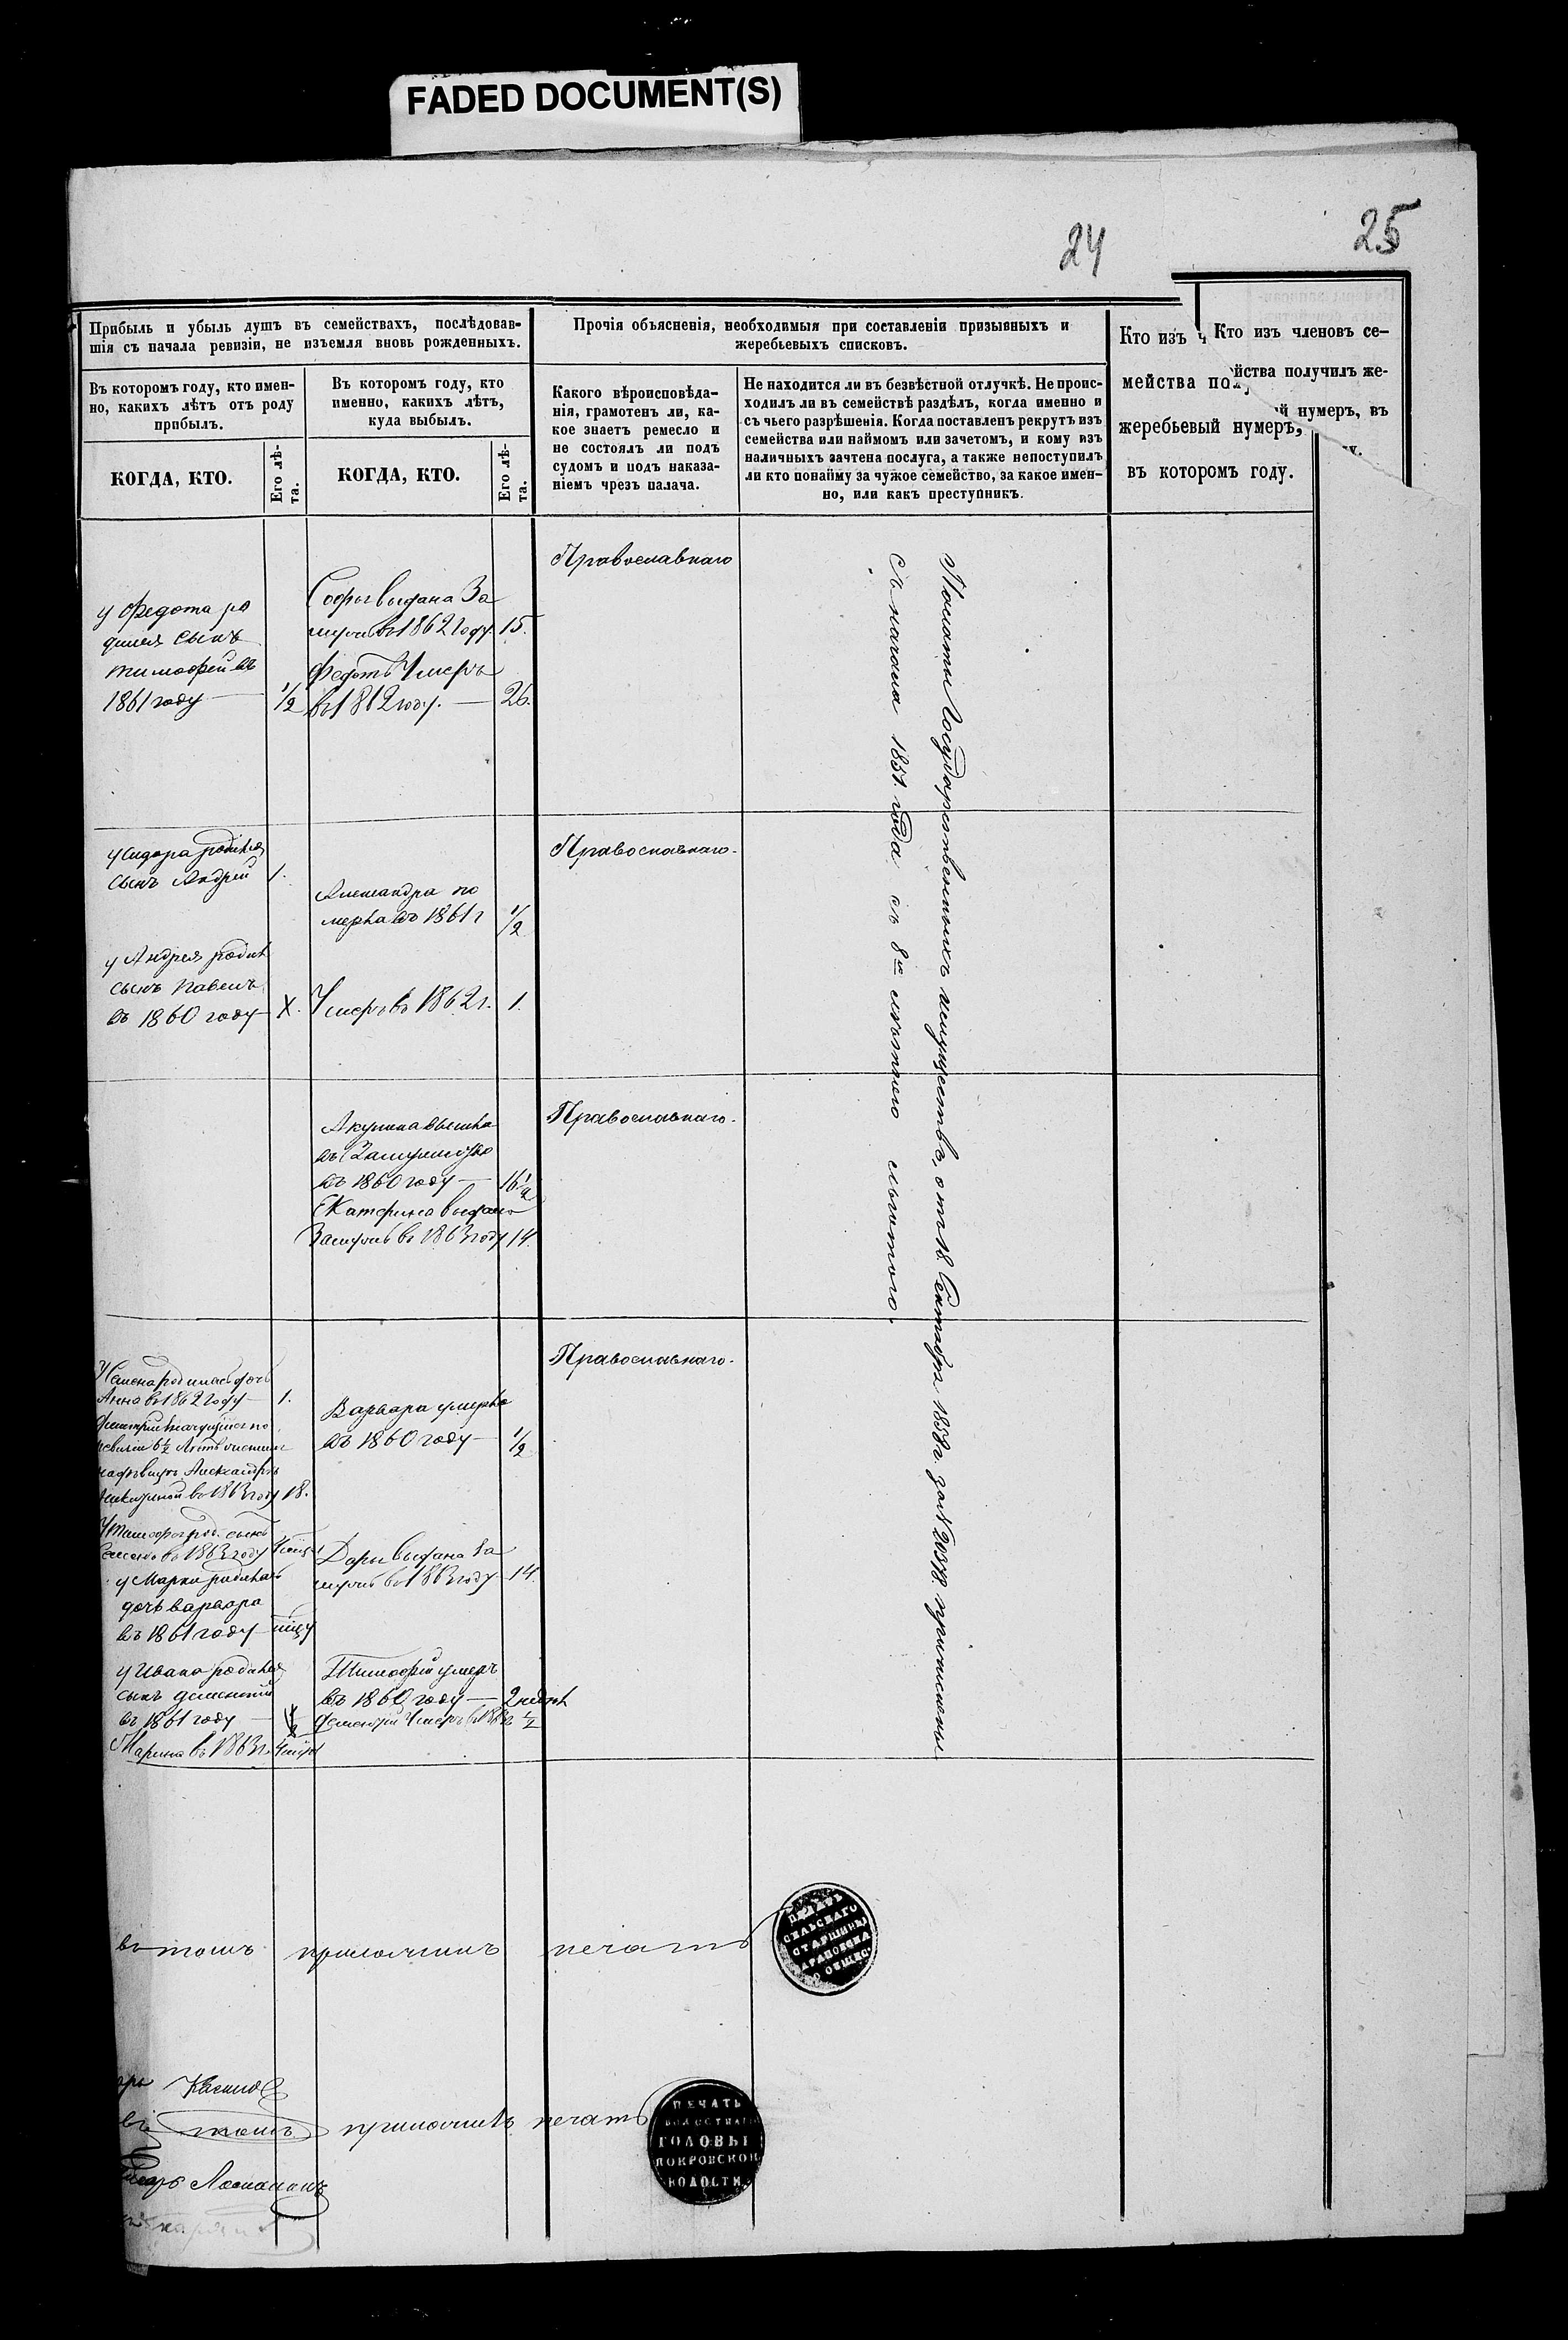 FADED DOCUMENT(S)
24
25
Прибыль и убыль душъ въ семействахъ, послѣдовав-
шія съ начала ревизіи, не изъемля вновь рожденныхъ.
Въ которомъ году, кто имен-
но, какихъ лѣтъ отъ роду
прибылъ.
КОГДА, КТО.
Его лѣ-
та.
Въ которомъ году, кто
именно, какихъ лѣтъ,
куда выбылъ.
КОГДА, КТО.
Его лѣ-
та.
Прочія объясненія, необходимыя при составленіи призывныхъ и
жеребьевыхъ списковъ.
Какого вѣроисповѣда-
нія, грамотенъ ли, ка-
кое знаетъ ремесло и
не состоялъ ли подъ
судомъ и подъ наказа-
ніемъ чрезъ палача.
Не находится ли въ безвѣстной отлучкѣ. Не проис-
ходилъ ли въ семействѣ раздѣлъ, когда именно и
съ чьего разрѣшенія. Когда поставленъ рекрутъ изъ
семейства или наймомъ или зачетомъ, и кому изъ
наличныхъ зачтена послуга, а также непоступилъ
ли кто понайму за чужое семейство, за какое имен-
но, или какъ преступникъ.
Кто изъ ч
мейства полу
жеребьевый нумеръ,
въ которомъ году.
Кто изъ членовъ се-
йства получилъ же-
й нумеръ, въ
у.
у Федота ро
дился сынъ
тимофей въ
1861 году — 1/2
Софья выдана За
мужъ въ 1862 году 15.
Федотъ Умеръ
въ 1862 году. — 26.
Православнаго
у Сидора родился
сынъ Андрей 1.
у Андрея родил
сынъ павелъ
въ 1860 году — X.
Александра по
мерла въ 1861 г 1/2
Умеръ въ 1862 г. 1.
Православнаго.
Акулина вышла
въ Замужество
въ 1860 году — 16 1/2
Екатерина выдана
Замужъ въ 1863 году 14.
Православнаго.
У Семена родилась дочь
Анна въ 1862 году — 1.
въ 1863 году 18.
У Тимофея род. сынъ
въ 1863 году
у Марка родилась
дочь варвара
въ 1861 году —
у Ивана родился
сынъ дементий
въ 1861 году —
Марина въ 1863 г.
Варвара умерла
въ 1860 году — 1/2
Дарья выдана За
мужъ въ 1863 году 14.
Тимофей умеръ
въ 1860 году — 2 недѣл
Дементий Умеръ въ 1862 г 1/2
Православнаго.
Палаты Государственныхъ имуществъ, отъ 18 Сентября 1858 г за № 20378 причислены
съ начала 1851. года съ 8ми лѣтнею льготою.
въ томъ приложилъ печать
ПЕЧАТЬ
СЕЛЬСКАГО
СТАРШИНЫ
О ОБЩЕС
въ томъ приложилъ печать
ПЕЧАТЬ
ВОЛОСТНАГО
ГОЛОВЫ
ПОКРОВСКОЙ
ВОЛОСТИ